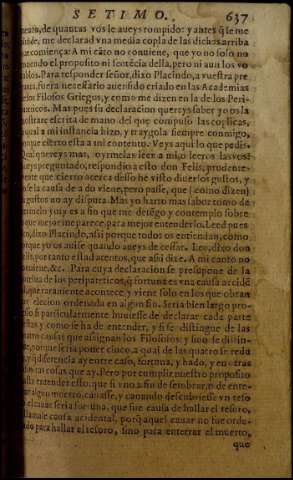 SETIMO. 637
de quantas vos le aueys rompido: y antes q̃ se me
me declarad vna media copla de las dichas arriba
comiença: A mi esto no conuiene, que yo no solo no
entiendo el proposito ni sentẽcia della, pero ni aun los vo
Para responder señor, dixo Placindo, a vuestra pre
fuera necessario auer sido criado en las Academias
Filosofos Griegos, y como me dizen en la de los Peri
Mas pues la declaracion quereys saber yo os la
mostrare escrita de mano del que compuso las coplicas,
qual a mi instancia hizo, y traygola siempre conmigo,
que estoy esta a mi contento. Veys aqui lo que pedis.
Qual quereys mas, o yrmelas leer a mi, o leeros las vos?
preguntado, respondio a esto don Felis, prudente
que cierto acerca desso he visto diuersos gustos, y
la causa de a do viene, pero passe, que (como dizen)
gustos no ay disputa. Mas yo harto mas sabor tomo de
yo, y es a fin que me detẽgo y contemplo sobre
que mejor me parece, para mejor entenderlo. Leed pues
dixo Placindo, assi porque todos os entiendan, como
porque yo os auise quando aueys de cessar. Leo, dixo don
por tanto estad atentos, que assi dize. A mi canto no
&c. Para cuya declaracion se presupone de la
de los peripateticos, q̃ fortuna es vna causa accidẽ
que raramente acontece, y viene solo en los que obran
eleccion ordenada en algun fin. Seria bien largo pro
si particularmente huuiesse de declarar cada parte
y como se ha de entender, y si se distingue de las
causas que assignan los Filosofos; y sino se distin
porque seria poner cinco, a qual de las quatro se redu
y q̃ diferencia ay entre caso, fortuna, y hado, y en otras
cosas que ay. Pero por cumplir nuestro proposito
entender esso, que si vno a fin de sembrar, o de ente
algun muerto, cauasse, y cauando descubriesse vn teso
el cauar seria fortuna, que fue causa de hallar el tesoro,
causa accidental, porq̃ aquel cauar no fue orde
para hallar el tesoro, sino para enterrar el muerto,
que